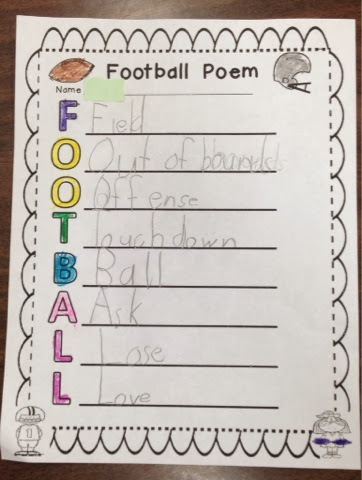 Football Poem
Name
F Field
O Out of bounds
O Offense
T Touchdown
B Ball
A Ask
L Lose
L Love